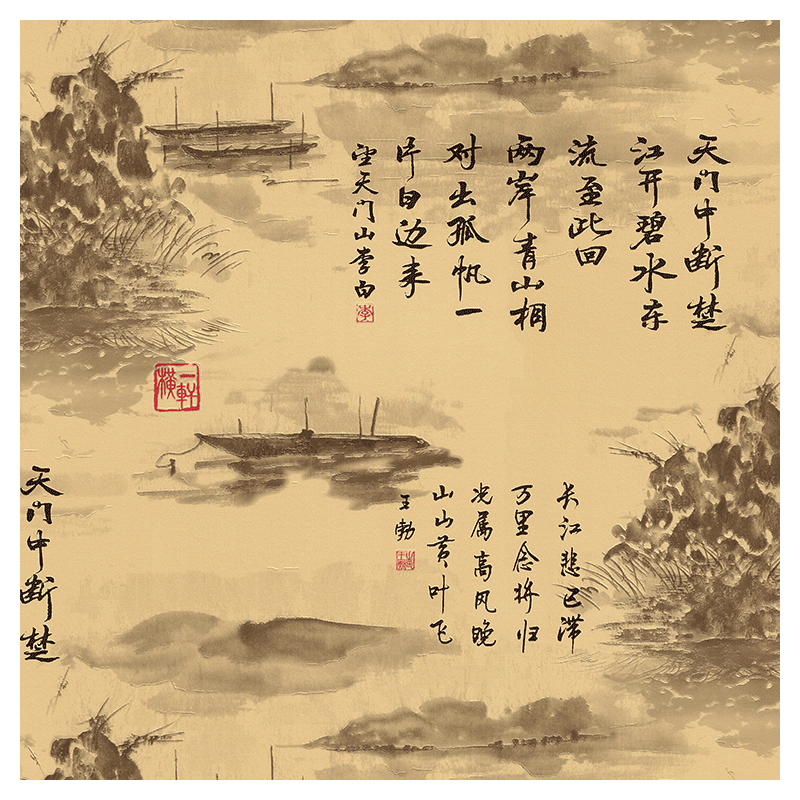 天门中断楚
江开碧水东
流至此回
两岸青山相
对出孤帆一
片白边来
望天门山李白
一軒
横
长江悲已滞
万里念将归
况属高风晚
山山黄叶飞
王勃
天门中断楚